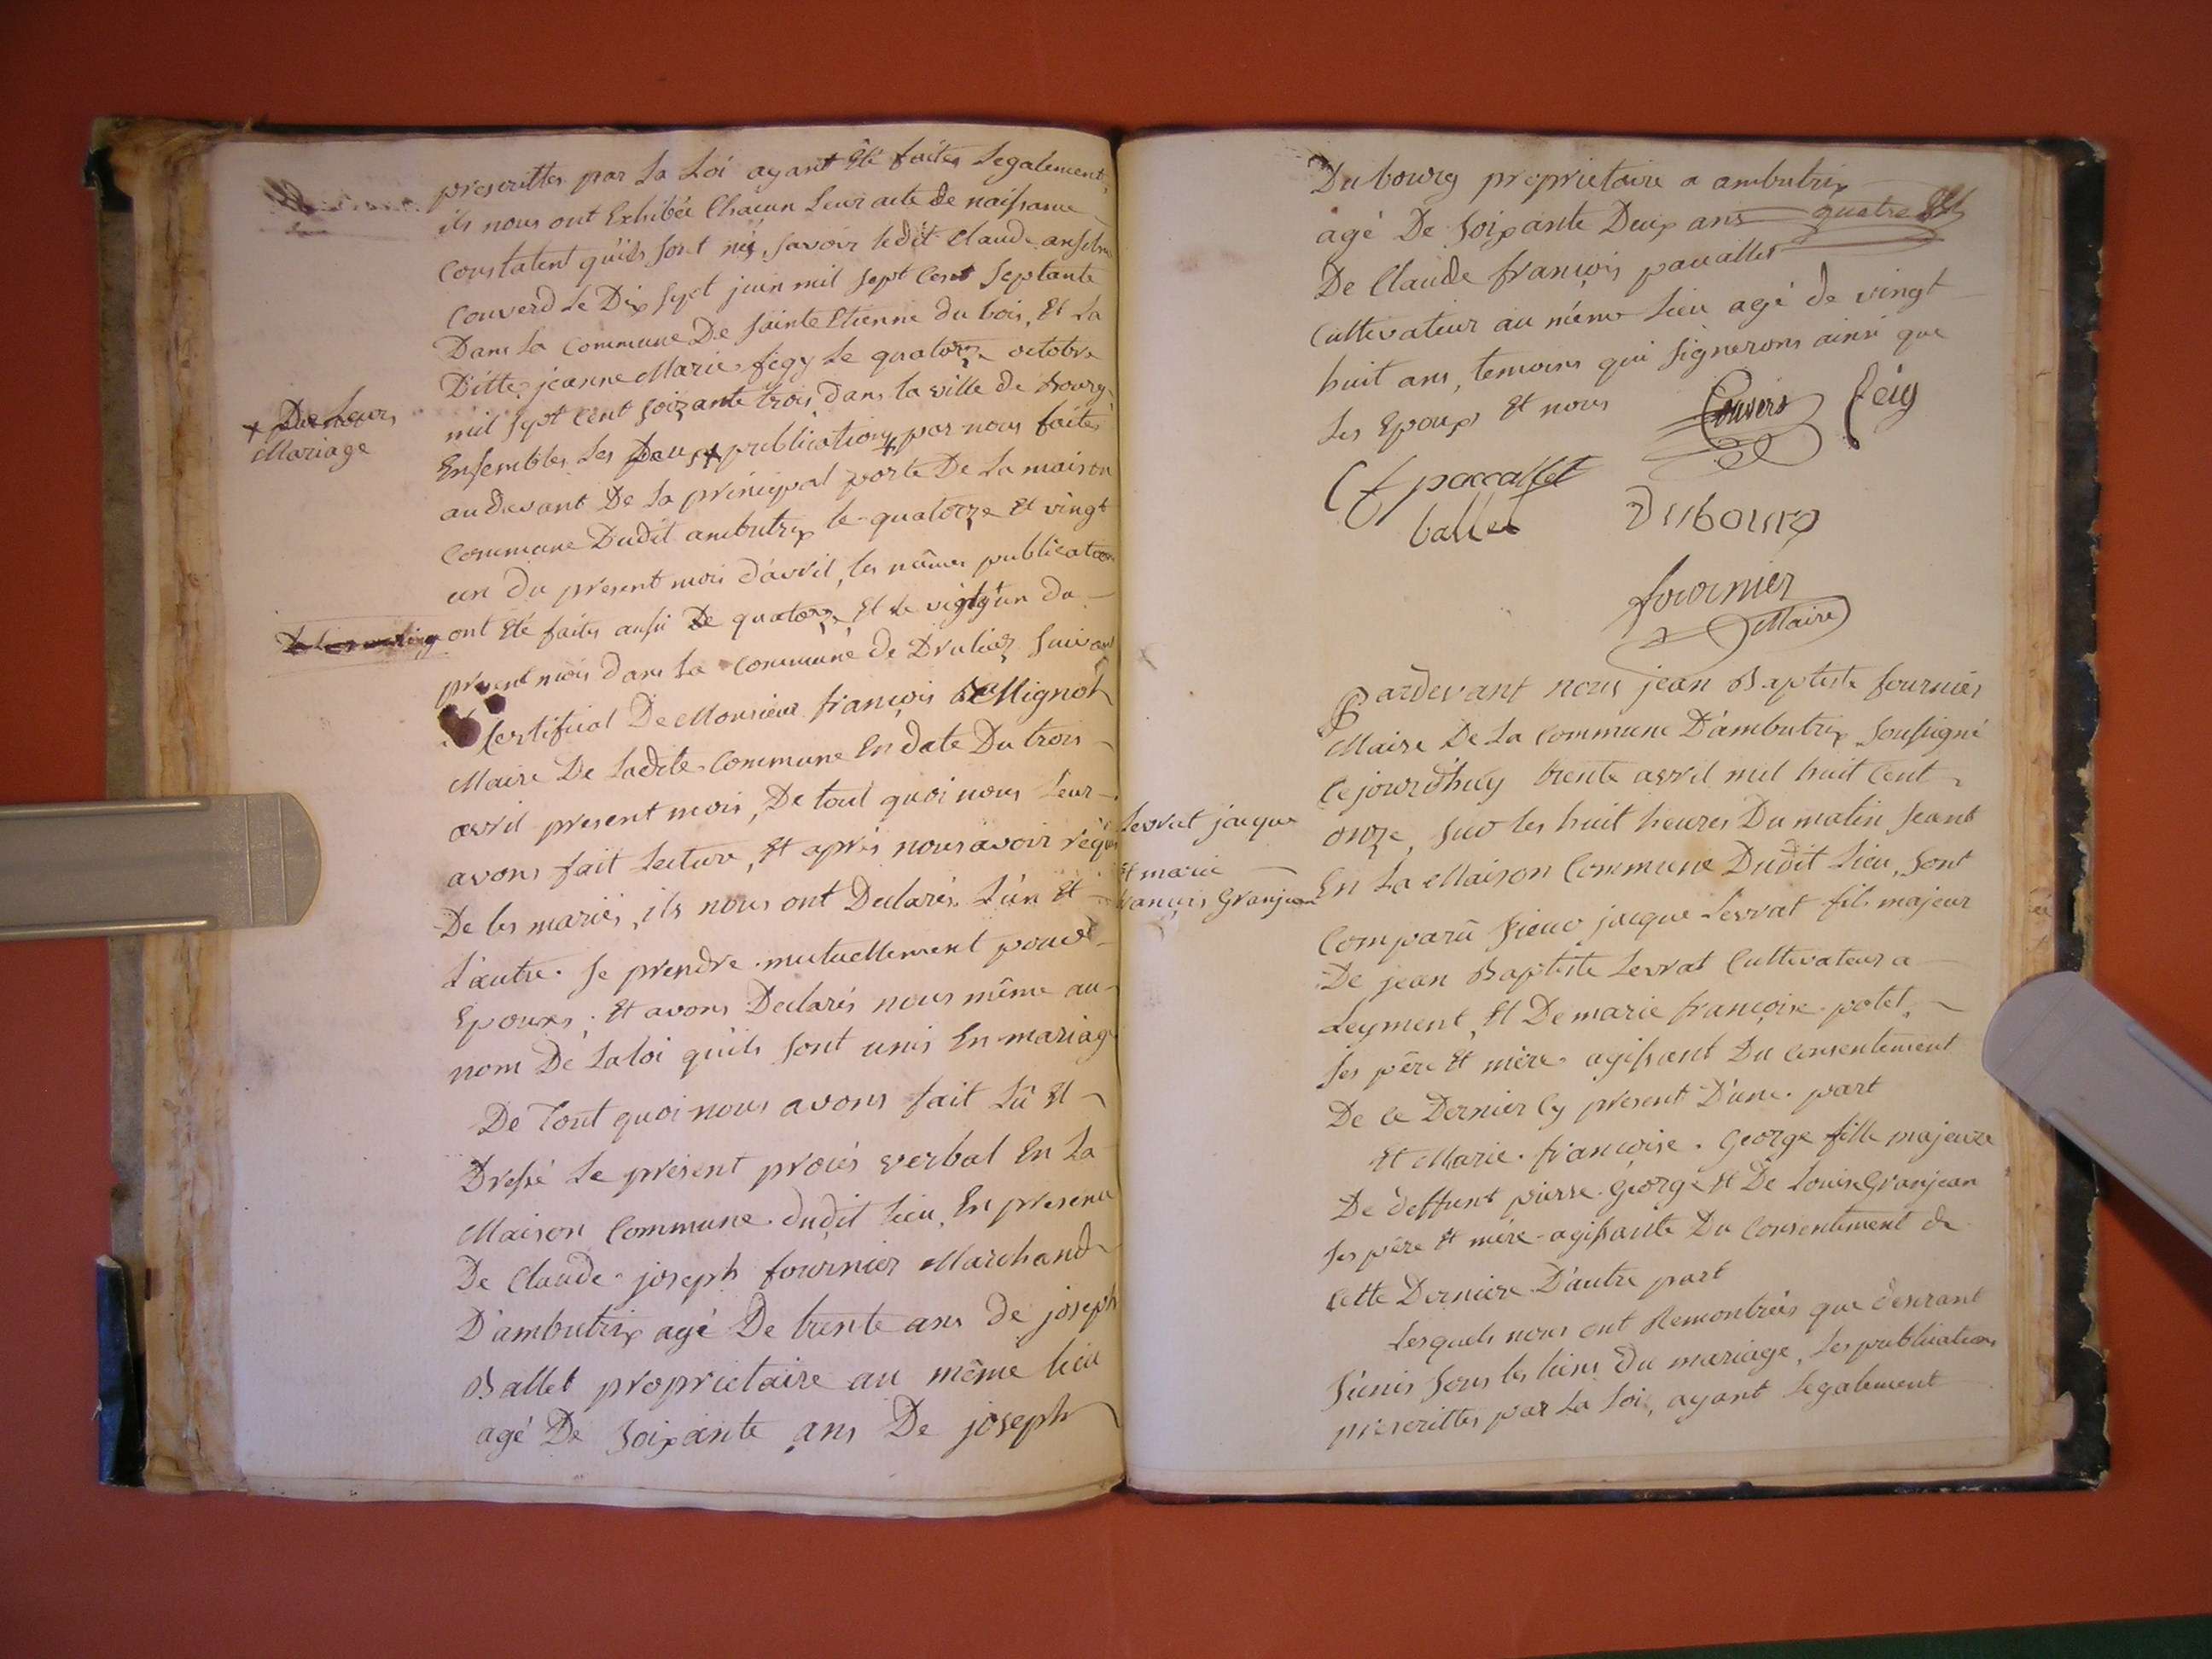 prescrittes par La Loi ayant Eté faites Legalement,
ils nous ont Exhibée Chacun Leur acte de naissance
Constatent qu'ils sont nés, savoir ledit Claude anselme
Couverd Le Dix sept juin mil sept Cent septante
Dans La Commune De sainte Etienne du bois, Et La
Ditte jeanne Marie fégy Le quatorze octobre
mil sept Cent soixante trois dans la ville de bourg,
Ensembles Les Deux + publications par nous faites
+ De Leurs
Mariage
au Devant De La principal porte De La maison
Commune Dudit ambutrix le quatorze Et vingt
un du present mois d'avril, les mêmes publication
ont Eté faites aussi De quatorze Et le vigt'un du
present mois dans La Commune de Druliez suivant
Certificat De Monsieur françois Mignot
Maire De Ladite Commune En date Du trois
avril present mois, De tout quoi nous Leur
avons fait Lecture, Et après nous avoir réquis
De les mariés, ils nous ont Declarés L'un Et
L'autre se prendre mutuellement pour
Epouxs; Et avons Declarés nous même au
nom De La loi qu'ils sont unis En mariage
De Tout quoi nous avons fait Lû Et
Dressé Le présent procés verbal En La
Maison Commune dudit lieu, En presence
De Claude joseph fournier Marchand
D'ambutrix agé De trente ans de joseph
Ballet proprietaire au même lieu
agé De Soixante ans De joseph
Dubourg proprietaire a ambutrix
agé De Soixante Deux ans quatre
De Claude françois pacallet
Cultivateur au même Lieu agé de vingt
huit ans, temoins qui signerons ainsi que
Les Epoux Et nous
Couvers féig
Cf paccallet
ballet Dubourg
fournier
Maire
Pardevant nous jean Baptiste fournier
Maire De La Commune D'ambutrix Soussigné
Cejourd'huy trente avril mil huit Cent
onze, sur les huit heures Du matin seant
En La Maison Commune Dudit Lieu, Sont
Levrat jacque
Et marie
françois Granjean
Comparû sieur jacque Levrat fils majeur
De jean Baptiste Levrat Cultivateur a
Leyment, Et De marie françoise potet
ses père Et mère agissant Du Consentement
De ce Dernier Cy present D'une part
Et Marie françoise George fille majeure
De deffunt pierre George Et De Louise Granjean
ses père Et mère agissante Du Consentement de
Cette Derniere D'autre part
Lesquels nous ont Remontrés que desirant
s'unir sous les liens du mariage, Les publications
prescrittes par La Loi, ayant Legalement